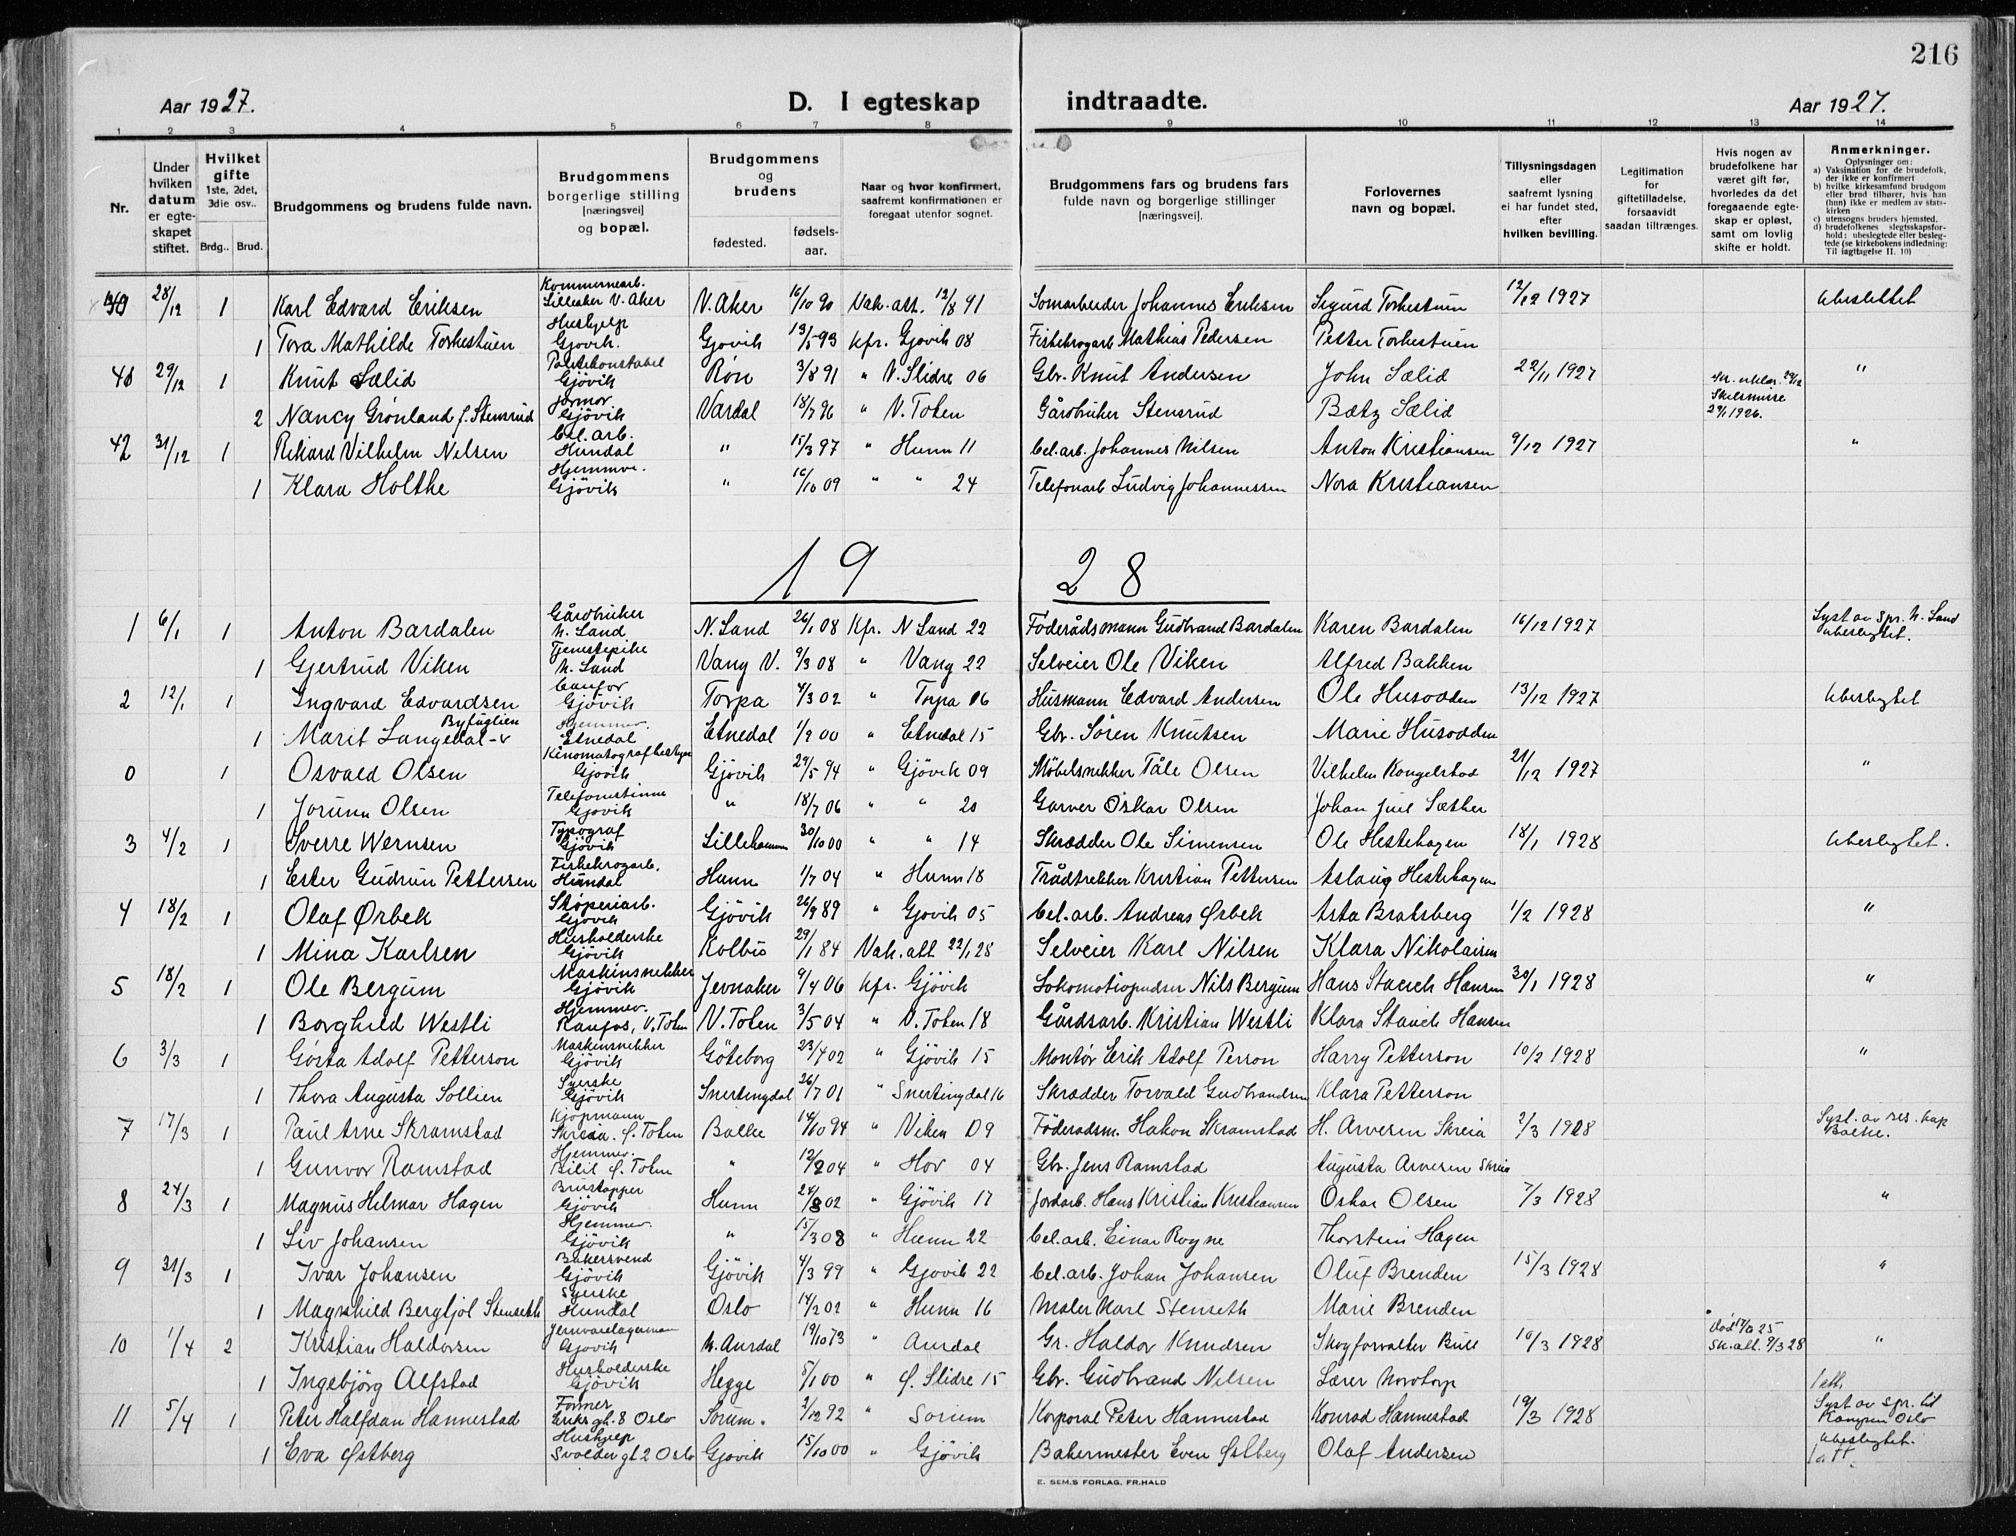 216
Aar 1927. D. I egteskap indtraadte. Aar 1927.
1 2 3 4 5 6 7 8 9 10 11 12 13 14
Nr.
Under hvilken datum er egteskapet stiftet.
Hvilket gifte 1ste, 2det, 3die osv..
Brdg.. Brud.
Brudgommens og brudens fulde navn.
Brudgommens borgerlige stilling [næringsvei] og bopæl.
Brudgommens og brudens
fødested. fødsels-aar.
Naar og hvor konfirmert, saafremt konfirmationen er foregaat utenfor sognet.
Brudgommens fars og brudens fars fulde navn og borgerlige stillinger [næringsvei].
Forlovernes navn og bopæl.
Tillysningsdagen eller saafremt lysning ei har fundet sted, efter hvilken bevilling.
Legitimation for giftetilladelse, forsaavidt saadan tiltrænges.
Hvis nogen av brudefolkene har været gift før, hvorledes da det foregaaende egteskap er opløst, samt om lovlig skifte er holdt.
Anmerkninger.
Oplysninger om:
a) Vaksination for de brudefolk, der ikke er konfirmert
b) hvilke kirkesamfund brudgom eller brud tilhører, hvis han (hun) ikke er medlem av statskirken
c) utensogns bruders hjemsted.
d) brudefolkenes slegtsskapsforhold: ubeslegtede eller beslegtede (se kirkebokens indledning: Til iagttagelse II. 10)
28/12 1 Karl Edvard Eriksen Kommunearb. Lilleaker V. Aker V. Aker 16/10 90 Vak. att. 12/8 91 Johannes Eriksen Sigurd Torkestuen 12/12 1927
1 Tora Mathilde Torkestuen Hushjelp Gjøvik. Gjøvik 13/5 93 kfr. Gjøvik 08 Fiskekrogarb Mathias Pedersen Petter Torkestuen
29/12 1 Knut Sælid Politikonstabel Gjøvik Røn 3/8 91 " V. Slidre 06 Gbr. Knut Andersen John Sælid 22/11 1927 "
2 Nancy Grønland f. Stensrud Jormor Gjøvik Vardal 18/7 96 " V. Toten Gårdbruker Stensrud Bætz Sælid Skilsmisse 1926.
42 31/12 1 Rikard Vilhelm Nilsen Cel. arb. Hundal " 15/3 97 " Hunn 11 Cel. arb. Johannes Nilsen Anton Kristiansen 9/12 1927 "
1 Klara Holthe Hjemmv. Gjøvik " 16/10 09 " " 24 Telefonarb Ludvig Johannessen Nora Kristiansen
1928
1 6/1 1 Anton Bardalen Gårdbruker N. Land N. Land 26/1 08 Kfr. N Land 22 Føderådsmann Gudbrand Bardalen Karen Bardalen 16/12 1927 Lyst av Spr. N. Land Ubeslegtet.
1 Gjertrud Viken Tjenestepike N. Land Vang V. 9/3 08 " Vang 22 Selveier Ole Viken Alfred Bakken
2 12/1 1 Ingvard Edvardsen Gjøvik Torpa 4/3 02 " Torpa 06 Husmann Edvard Andersen Ole Husodden 13/12 1927 Ubeslegtet
1 Marit Langedal Byfuglien Hjemmev. Etnedal Etnedal 1/9 00 " Etnedal 15 Gbr. Søren Knutsen Marie Husodden
0 1 Osvald Olsen Kinomatografbestyrer Gjøvik Gjøvik 29/5 94 " Gjøvik 09 Møbelsnekker Tåle Olsen Vilhelm Kongelstad 21/12 1927 "
1 Jorunn Olsen Telefonistinne Gjøvik " 18/7 06 " " 20 Garver Oskar Olsen Johan Juel Sæther
3 4/2 1 Sverre Wernsen Typograf Gjøvik Lillehammer 30/10 00 " " 14 Skrædder Ole Simensen Ole Hestehagen 18/1 1928 Ubeslegtet.
1 Ester Gudrun Pettersen Fiskekrogarb. Hundal Hunn 1/7 04 " Hunn 18 Trådtrekker Kristian Pettersen Aslaug Hestehagen
4 18/2 1 Olaf Ørbek Støperiarb. Gjøvik Gjøvik 26/9 89 " Gjøvik 05 Cel. arb. Andreas Ørbek Asta Bratsberg 1/2 1928 "
1 Mina Karlsen Husholderske Gjøvik Kolbu 29/1 84 Vak. att 22/1 28 Selveier Karl Nilsen Klara Nikolaisen
5 18/2 1 Ole Bergum Maskinsnekker Gjøvik Jevnaker 9/4 06 kfr. Gjøvik Lokomotivpudser Nils Bergum Hans Staerk Hansen 30/1 1928 "
1 Borghild Westli Hjemmev. Raufos, V. Toten V. Toten 3/5 04 " V. Toten 18 Gårdsarb. Kristian Westli Klara Staerk Hansen
6 3/3 1 Gøsta Adolf Petterson Maskinsnekker Gjøvik Göteborg 23/4 02 " Gjøvik 15 Montør Erik Adolf Person Harry Petterson 10/2 1928 "
1 Thora Augusta Sollien Syerske Gjøvik Snertingdal 26/7 01 " Snertingdal 16 Skrædder Torvald Gudbrandsen Klara Petterson
7 17/3 1 Paul Arne Skramstad Kjøpmann Skreia. Ø. Toten Balke 14/10 94 " Viken 09 Føderadsm. Hakon Skramstad H. Arvesen Skreia 2/3 1928 Lyst. av res. kap Balke.
1 Gunvor Ramstad Hjemmev. Bilit Ø. Toten " 12/2 04 " Hov 04 Gbr. Jens Ramstad Augusta Arvesen Skreia
8 24/3 1 Magnus Helmar Hagen Brustapper Gjøvik Hunn 24/8 02 " Gjøvik 17 Jordarb. Hans Kristian Kristiansen Oskar Olsen 7/3 1928 "
1 Liv Johansen Hjemmev. Gjøvik " 15/3 08 " Hunn 22 Cel. arb. Einar Rogne Thorstein Hagen
9 31/3 1 Ivar Johansen Bakersvend Gjøvik Gjøvik 4/3 99 " Gjøvik 22 Cel. arb. Johan Johansen Oluf Brenden 15/3 1928 "
1 Magnhild Bergljot Stenseth Syerske Hundal Oslo 14/2 02 " Hunn 16 Maler Karl Stenseth Marie Brenden
10 1/4 2 Kristian Haldorsen Jernvarelagermann Gjøvik N. Aurdal 19/10 73 " Aurdal Gr. Haldor Knudsen Skogforvalter Bull 10/3 1928 død 25 Sk. att. 9/3 28 "
1 Ingebjørg Alfstad Husholderske Gjøvik Hegge 5/1 00 " Ø. Slidre 15 Gbr. Gudbrand Nilsen Lærer Nordtorp 1 att.
11 5/4 1 Peter Halfdan Hannestad Former Eriks gt. 8 Oslo Sørum. 2/12 92 " Sørum Korporal Peter Hannestad Konrad Hannestad 19/3 1928 Lyst av spr. til Kampen Oslo
1 Eva Østberg Hushjelp Svolder gt 2 Oslo Gjøvik 15/10 00 " Gjøvik Bakermester Even Østberg Olaf Andersen Ubeslegtet. 1 att.
E. SEM.S FORLAG, FR.HALD